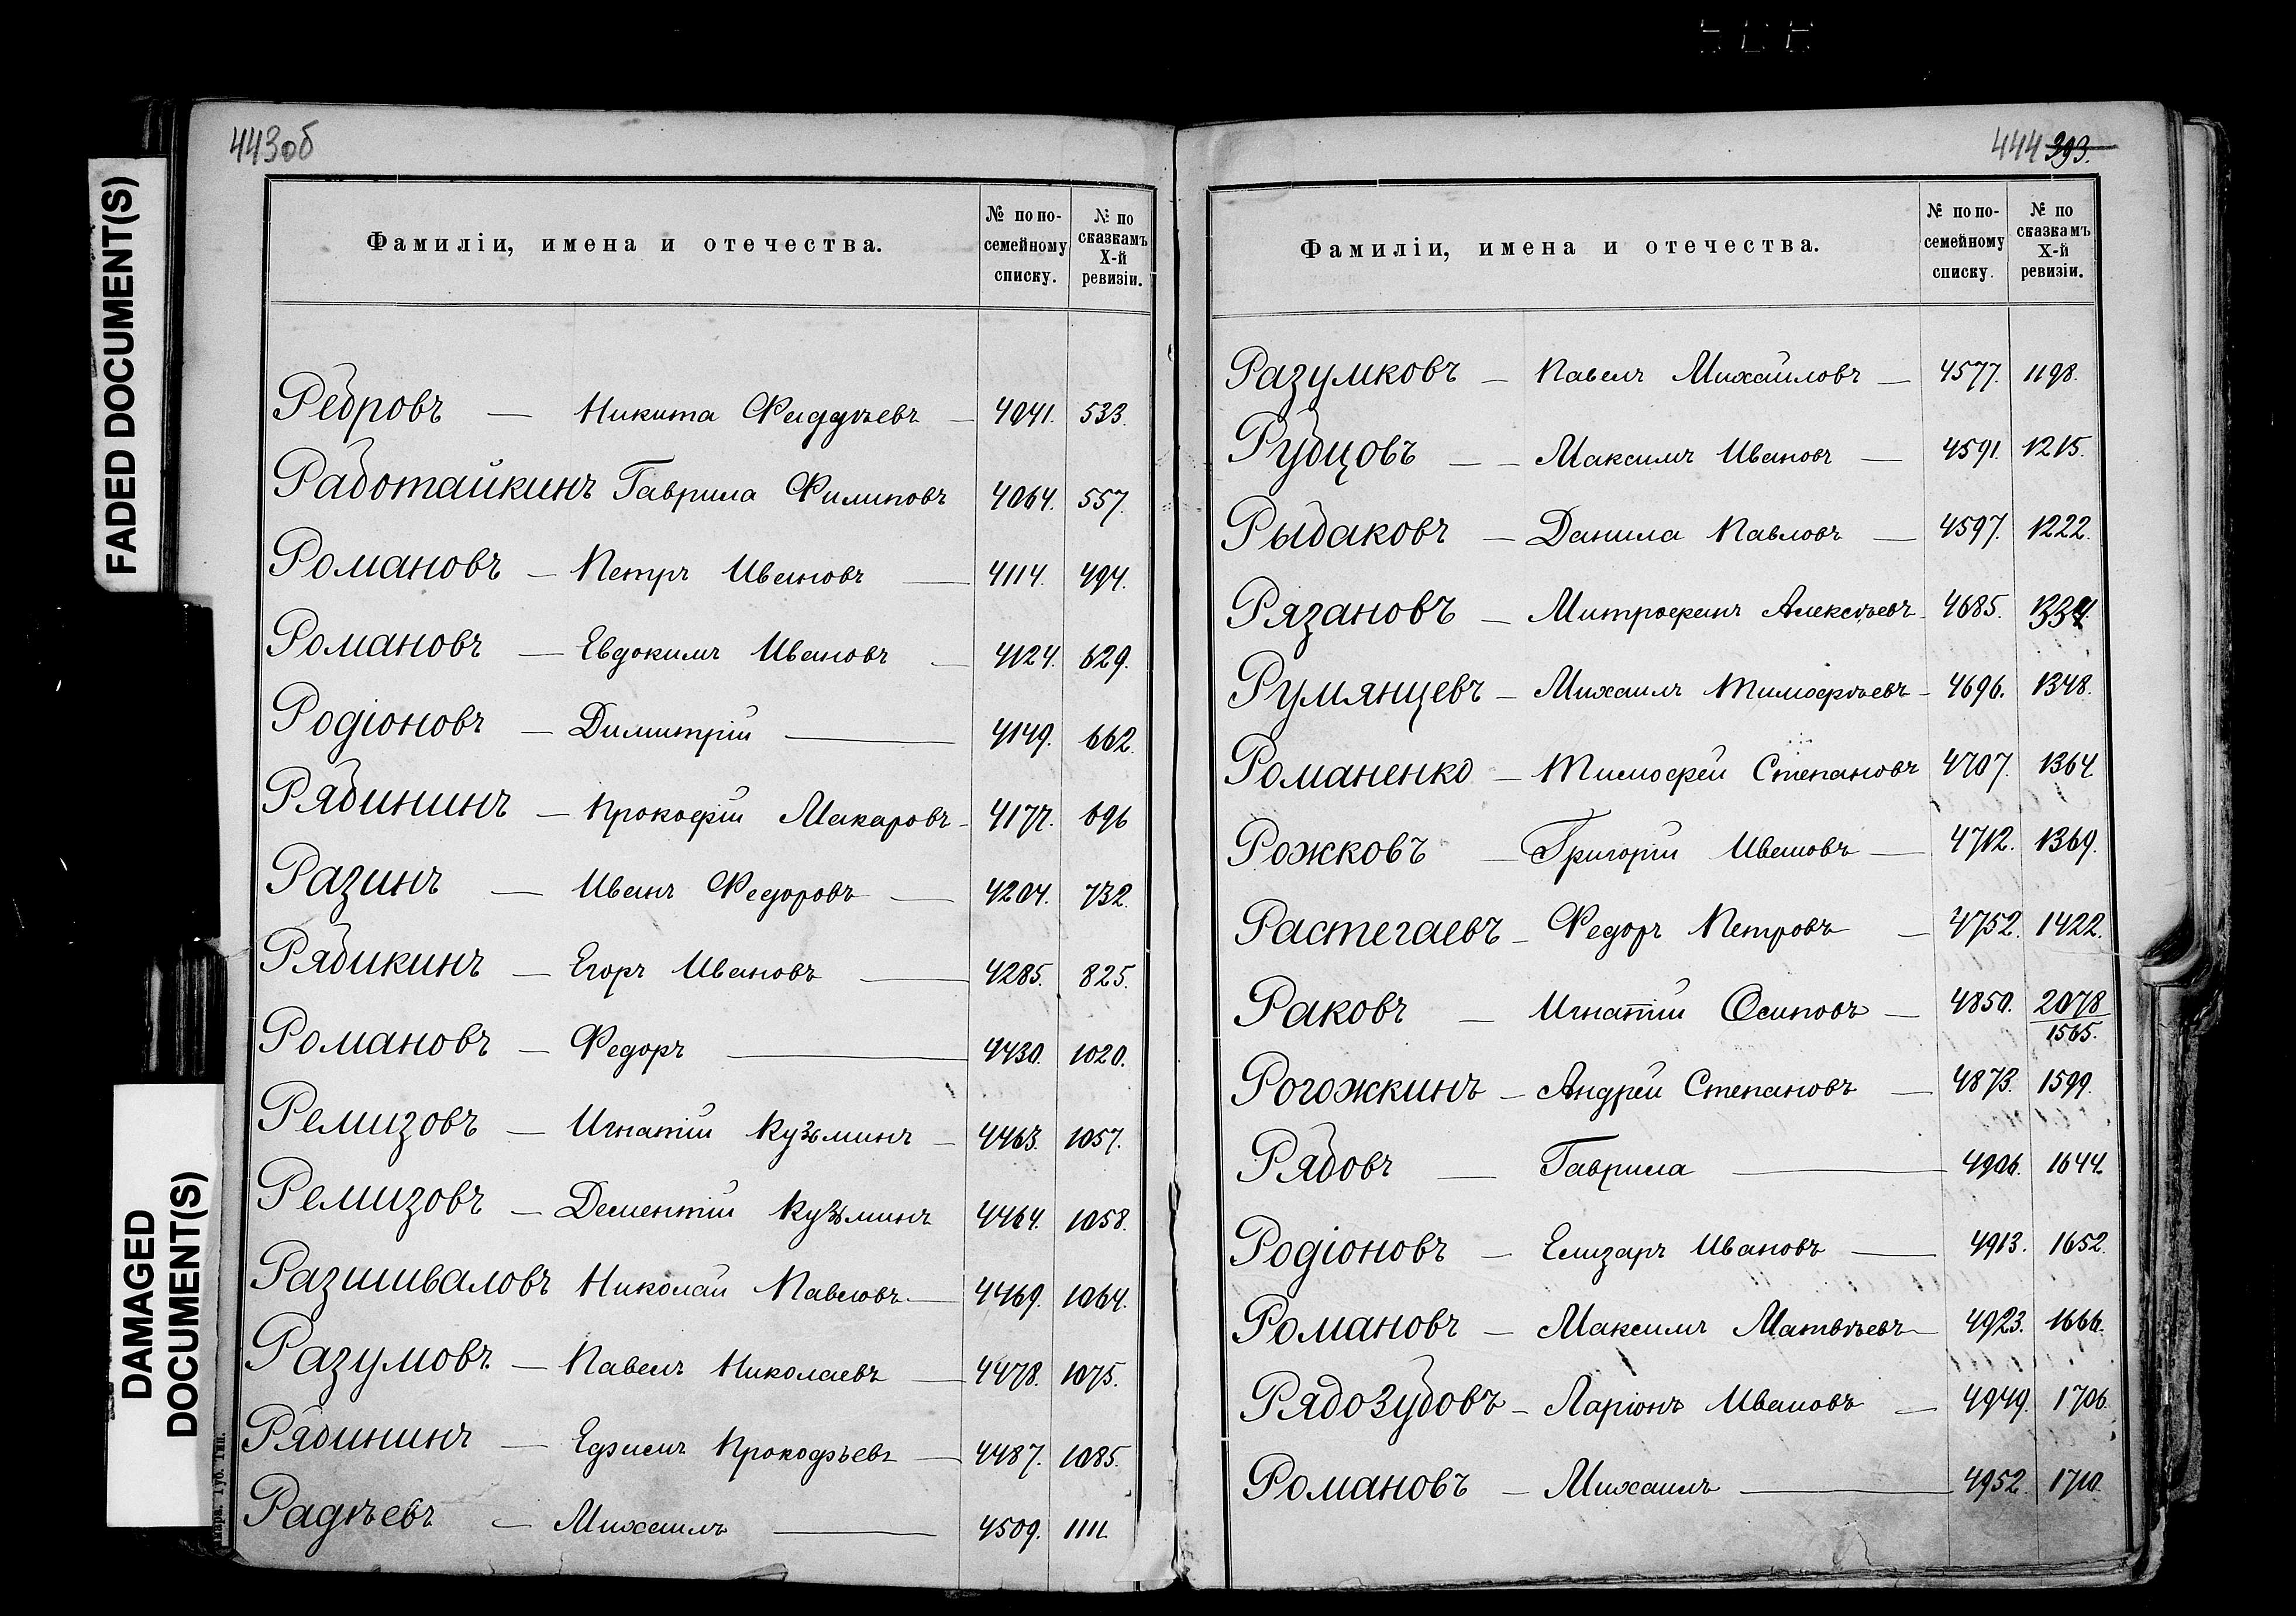 443об
Фамиліи, имена и отечества.
№ по по-семейному списку.
№ по сказкамъ X-й ревизіи.
Ребровъ — Никита Фаддѣевъ — 4041. 533.
Работайкинъ Гаврила Филиповъ 4064. 557.
Романовъ — Петръ Ивановъ — 4114. 494.
Романовъ — Евдокимъ Ивановъ — 4124. 629.
Родіоновъ — Димитрій — 4149. 662.
Рябининъ — Прокофій Макаровъ — 4177. 696
Разинъ — Иванъ Федоровъ — 4204. 732.
Рябикинъ — Егоръ Ивановъ — 4285. 825.
Романовъ — Федоръ — 4430. 1020.
Ремизовъ — Игнатій Кузьминъ — 4463. 1057.
Ремизовъ — Дементій Кузьминъ 4464. 1058.
Разшиваловъ Николай Павловъ — 4469. 1064.
Разумовъ — Павелъ Николаевъ — 4478. 1075.
Рябининъ — Ефимъ Прокофьевъ — 4487. 1085.
Радѣевъ — Михаилъ — 4509. 1111.
Губ. Тип.
444 393.
Фамиліи, имена и отечества.
№ по по-семейному списку.
№ по сказкамъ X-й ревизіи.
Разумковъ — Павелъ Михайловъ — 4577. 1198.
Рубцовъ — — Максимъ Ивановъ — 4591. 1215.
Рыбаковъ — Данила Павловъ — 4597. 1222.
Рязановъ — Митрофанъ Алексѣевъ 4685. 1334.
Румянцевъ — Михаилъ Тимофѣевъ — 4696. 1348.
Романенко — Тимофей Степановъ 4707. 1364
Рожковъ — Григорій Ивановъ — 4712. 1369.
Растегаевъ — Федоръ Петровъ — 4752. 1422.
Раковъ — Игнатій Осиповъ — 4850. 2078
1565.
Рогожкинъ — Андрей Степановъ — 4873. 1599.
Рябовъ — Гаврила — 4906. 1644.
Родіоновъ — Елизаръ Ивановъ — 4913. 1652.
Романовъ — Максимъ Матвѣевъ — 4923. 1666.
Рябозубовъ — Ларіонъ Ивановъ — 4949. 1706.
Романовъ — Михаилъ — 4952. 1710.
FADED DOCUMENT(S)
DAMAGED
DOCUMENT(S)